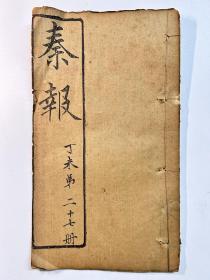 秦報
丁未第二十七册